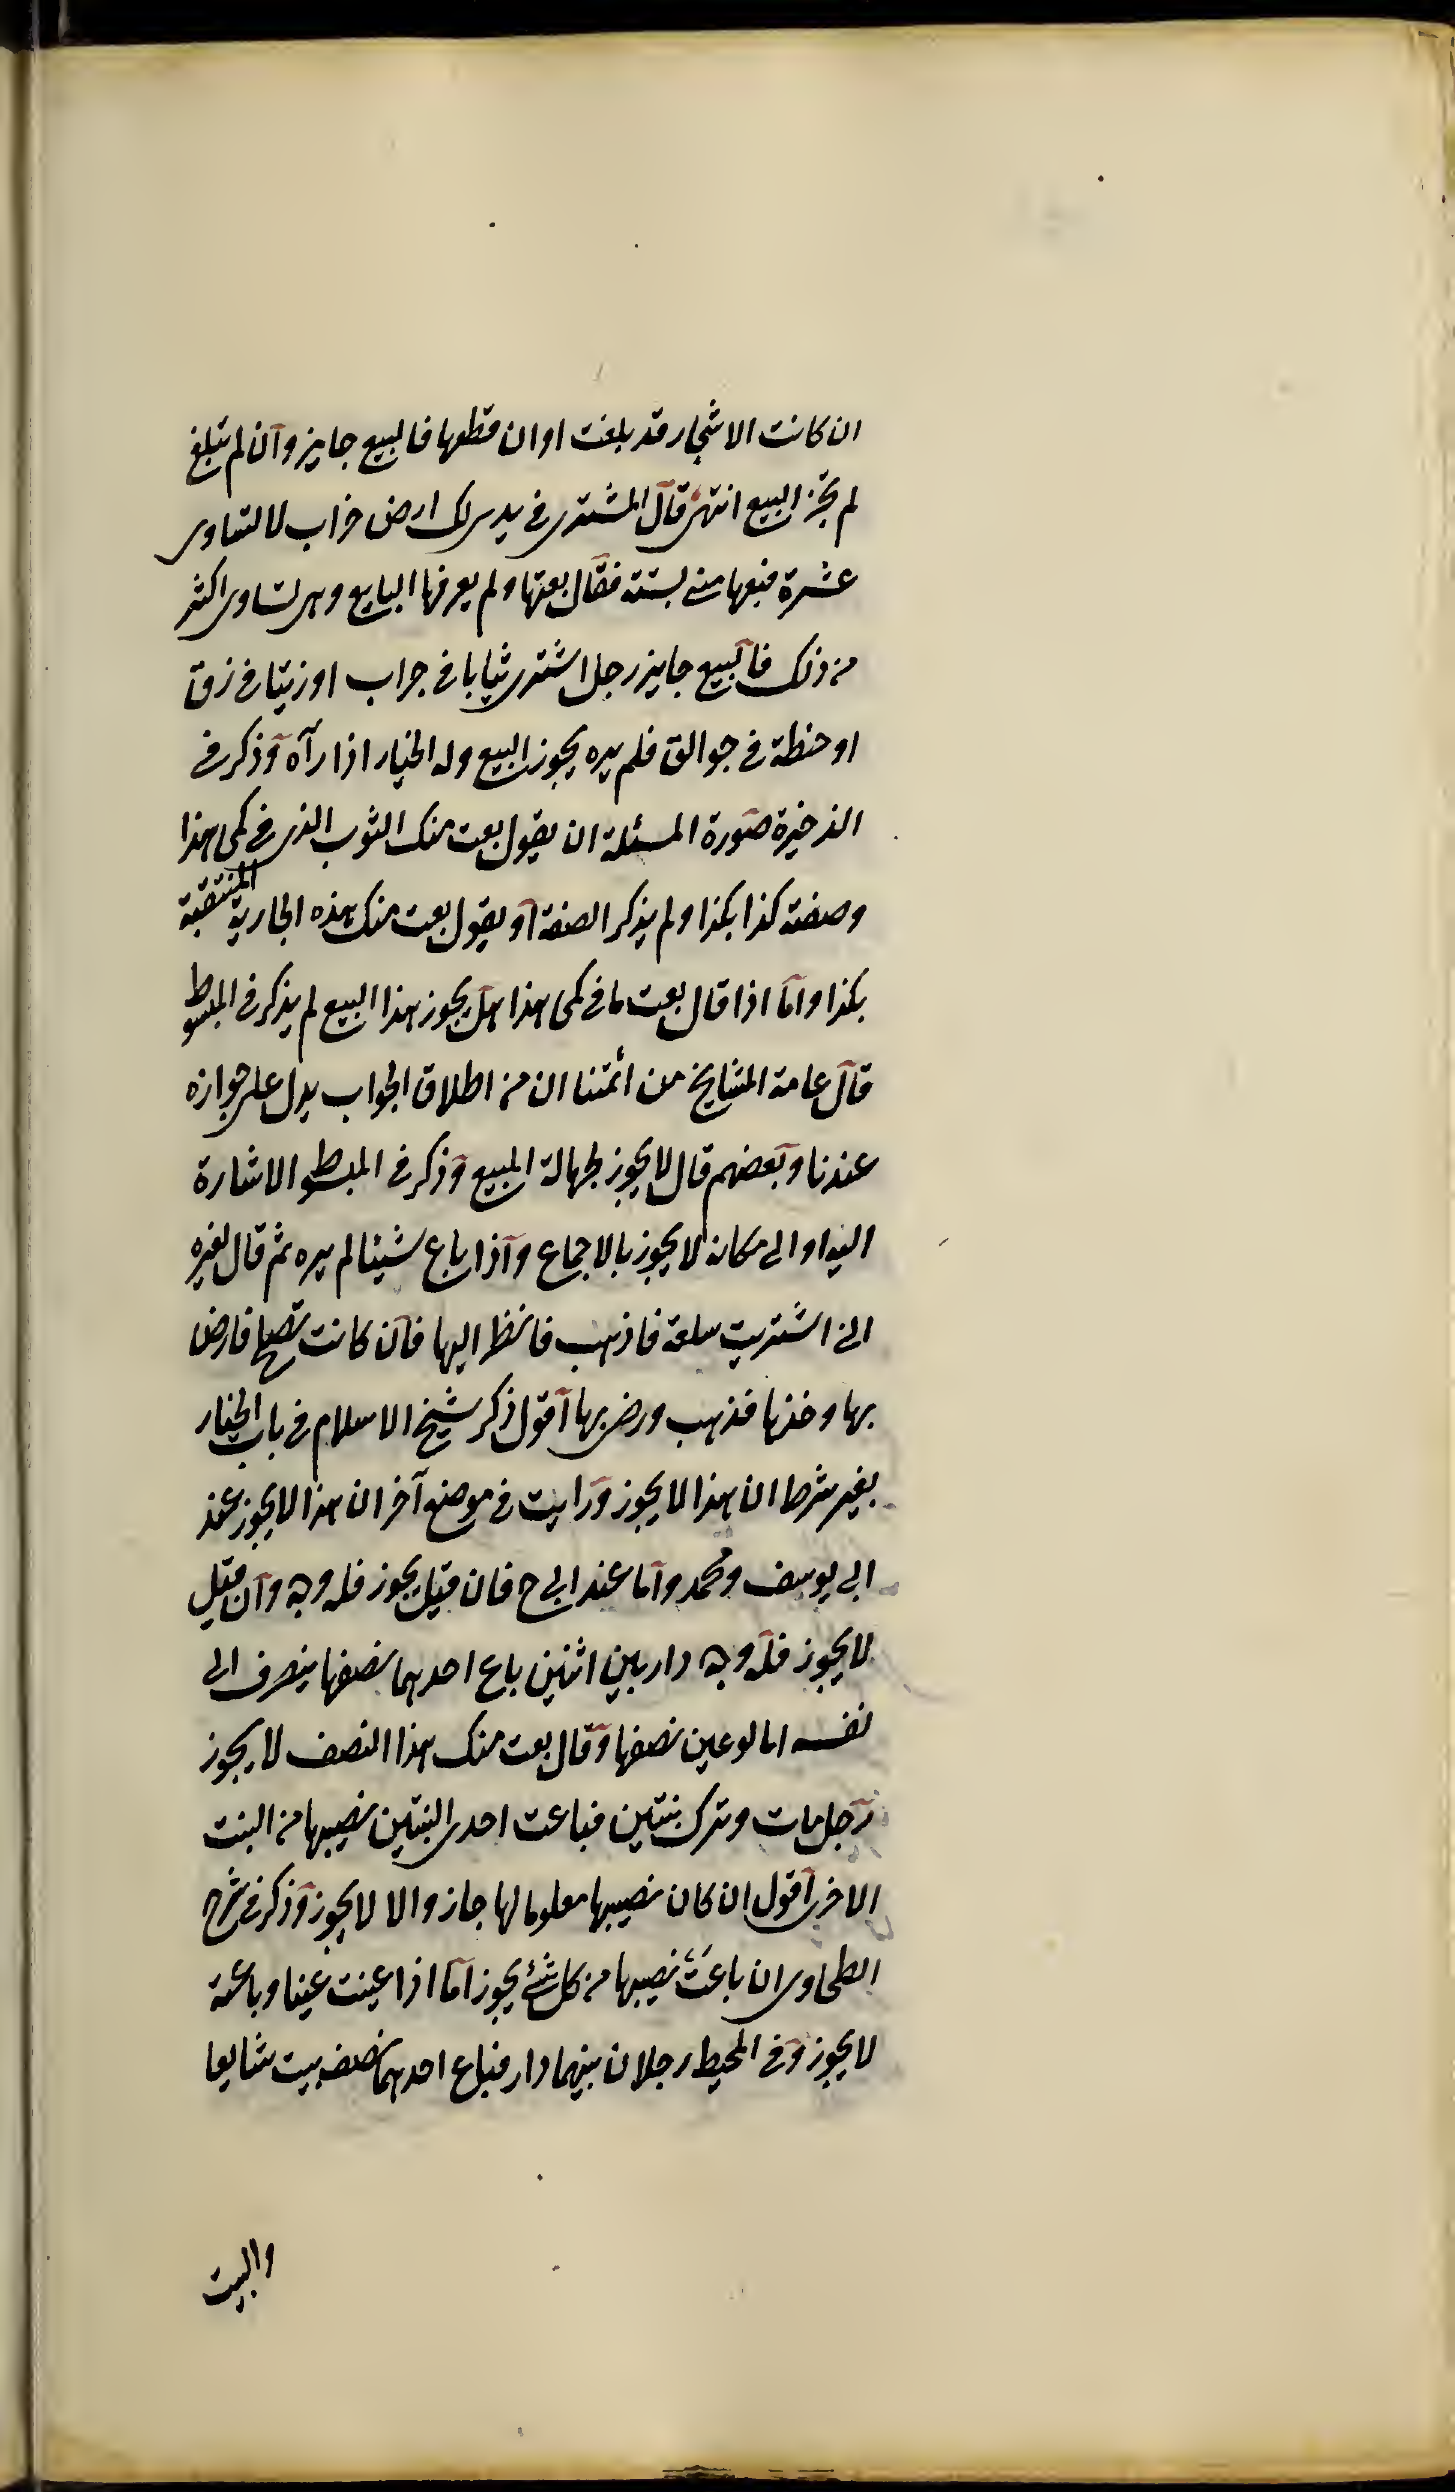 ان كانت الاشجار قد بلغت اوان قطعها فالبيع جايز وان لم تبلغ
لم يجز البيع انتهى قال المشترى فى يدى لك ارض خراب لا تساوى
عشرة فبعها منى بستة فقال بعتها ولم يعرفها البايع وهى تساوى اكثر
من ذلك فالبيع جايز رجل اشترى ثيابا فى جراب او زيتا فى زق
او حنطة فى جوالق فلم يره يجوز البيع وله الخيار اذا رآه وذكر فى
الذخيرة صورة المسئلة ان يقول بعت منك الثوب الذى فى كمى هذا
وصفته كذا بكذا ولم يذكر الصفة او يقول بعت منك هذه الجارية المنتقبة
بكذا واما اذا قال بعت ما فى كمى هذا هل يجوز هذا البيع لم يذكر فى المبسوط
قال عامة المشايخ من ائمتنا ان من اطلاق الجواب يدل على جوازه
عندنا وبعضهم قال لا يجوز لجهالة المبيع وذكر فى المبسوط الاشارة
اليه او الى مكانه لا يجوز بالاجماع واذا باع شيئا لم يره ثم قال لغيره
انى اشتريت سلعة فاذهب فانظر اليها فان كانت تصلح فارض
بها وخذها فذهب ورضى بها اقول ذكر شيخ الاسلام فى باب الخيار
بغير شرط ان هذا لا يجوز ورايت فى موضع آخر ان هذا لا يجوز عند
ابى يوسف ومحمد واما عند ابى ح فان قيل يجوز فله وجه وان قيل
لا يجوز فله وجه دار بين اثنين باع احدهما نصفها ينصرف الى
نفسه اما لو عين نصفها وقال بعت منك هذا النصف لا يجوز
رجل مات وترك بنتين فباعت احدى البنتين نصيبها من البنت
الاخرى اقول ان كان نصيبها معلوما لها جاز والا لا يجوز وذكر فى شرح
الطحاوى ان باعت نصيبها من كل شئ يجوز اما اذا عينت عينا وباعته
لا يجوز وفى المحيط رجلان بينهما دار فباع احدهما نصف بيت شايعا
والبيت